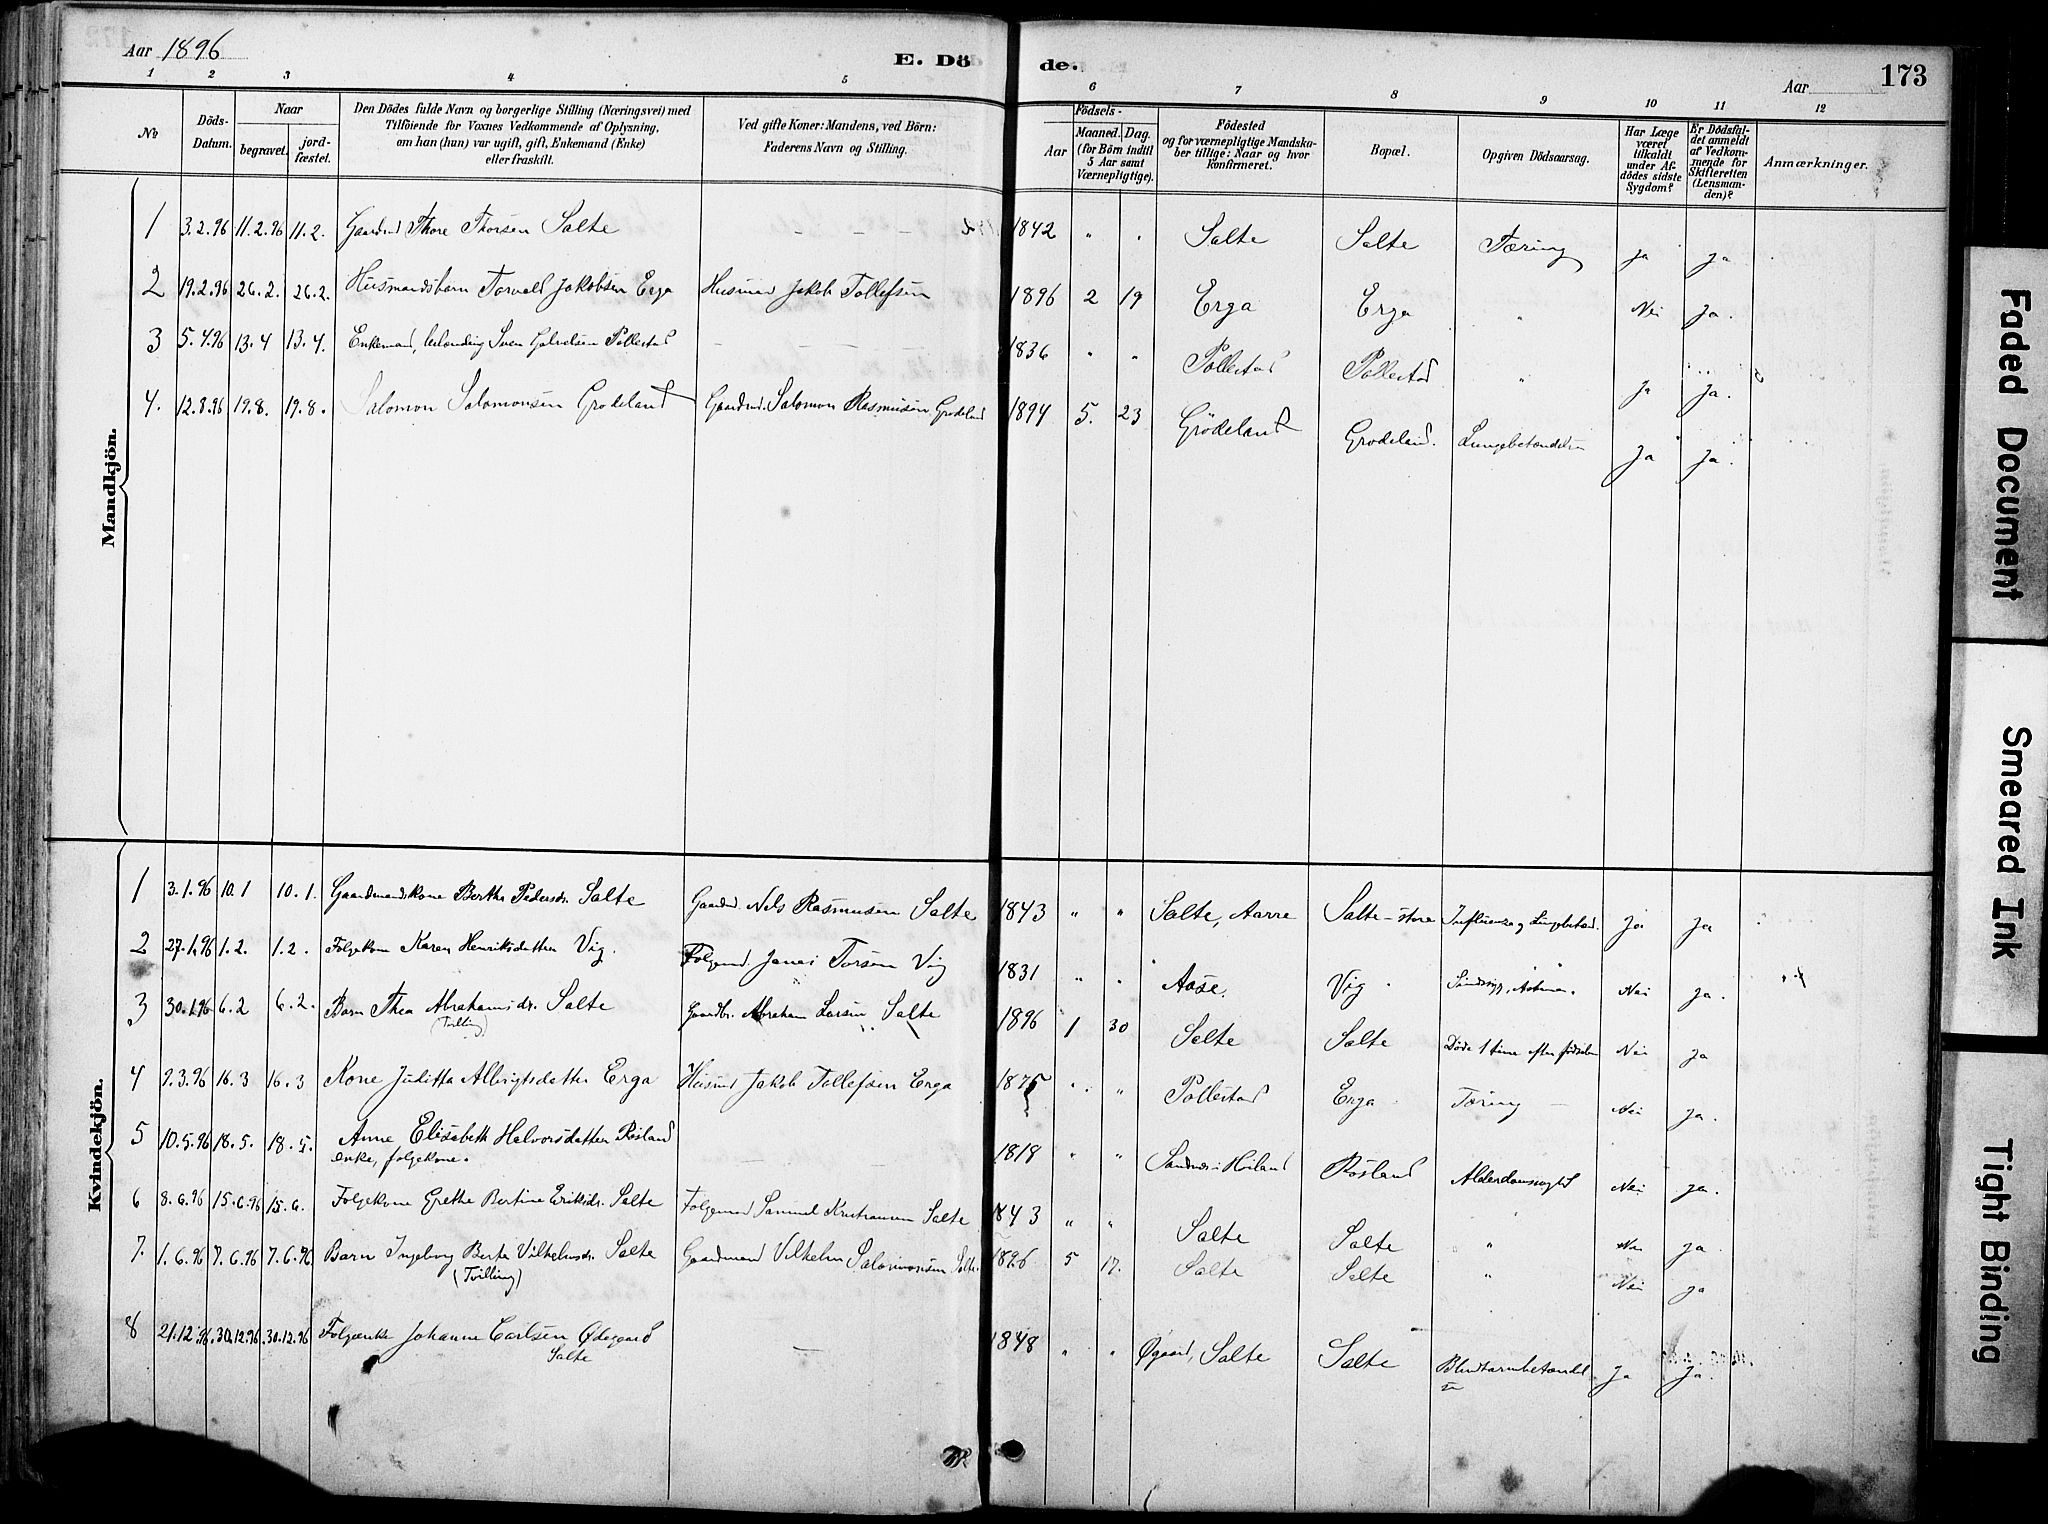 Aar 1896
E. Döde.
Aar
173
1 2 3 4 5 6 7 8 9 10 11 12
No
Döds-Datum.
Naar
begravet.
jord-fæstet.
Den Dödes fulde Navn og borgerlige Stilling (Næringsvei) med
Tilföiende for Voxnes Vedkommende af Oplysning,
om han (hun) var ugift, gift, Enkemand (Enke)
eller fraskilt.
Ved gifte Koner: Mandens, ved Börn:
Faderens Navn og Stilling.
Födsels-
Aar
Maaned. Dag.
(for Börn indtil
5 Aar samt
Værnepligtige).
Födested
og for værnepligtige Mandska-
ber tillige: Naar og hvor
konfirmeret.
Bopæl.
Opgiven Dödsaarsag.
Har Læge
været
tilkaldt
under Af-
dödes sidste
Sygdom?
Er Dödsfal-
det anmeldt
af Vedkom-
mende for
Skifteretten
(Lensman-
den)?
Anmærkninger.
Mandkjön.
1 3.2.96 11.2.96 11.2. Gaardmd Thore Thorsen Salte - - - 1842 " " Salte Salte Tæring ja ja
2 19.2.96 26.2. 26.2. Husmandsbarn Torvald Jakobsen Erga Husmand Jakob Tollefsen 1896 2 19 Erga Erga " Nei Ja.
3 5.4.96 13.4 13.4. Enkemand, Sven Pollestad - - - 1836 " " Pollestad Pollestad " Ja Ja.
4. 12.8.96 19.8. 19.8. Salomon Salomonsen Grødeland Gaardmd. Salomon Rasmusen Grødeland 1894 5. 23 Grödeland Grødeland. Lungebetændelse Ja Ja.
Kvindekjön.
1 3.1.96 10.1 10.1. Gaardmandskone Berthe Pedersdr. Salte Gaardmd. Nels Rasmusen Salte 1843 " " Salte, Aarre Salte-store Influenza og Lungebetænd. Ja Ja
2 27.1.96 1.2. 1.2. Folgekone Karen Henriksdatter Vig. Folgemd. Jonas Torsen Vig 1831 " " Aase. Vig Nei Ja.
3 30.1.96 6.2 6.2. Barn Thea Abrahamsdr. Salte Gaardbr. Abraham Larsen Salte 1896 1 30 Salte Salte Døde 1 time efter fødselen Nei Ja
(Tvilling)
4 9.3.96 16.3 16.3 Kone Juditta Albrigtsdatter Erga Husmd Jakob Tollefsen Erga 1875 " " Pollestad Erga Tæring - Nei Ja.
5 10.5.96 18.5. 18.5. Anne Elisabeth Halvorsdatter Røsland - - 1818 " " Sandnes i Høiland Røsland Alderdomssvaghed Nei Ja.
enke, folgekone.
6 8.6.96 15.6.96 15.6. Folgekone Grethe Bertine Eriksdr. Salte Folgemand Samuel Kristiansen Salte 1843 " " Salte Salte " Nei Ja.
7. 1.6.96 7.6.96 7.6.96 Barn Ingeborg Berta Vilhelmsdr. Salte Gaardmand Vilhelm Salomonsen Salte 1896 5 17. Salte Salte " Nei Ja
(Tvilling)
8 21.12.96 30.12.96 30.12.96 Folgeenke Johanne Carlsen Ødegaard - 1848 " " Øgaard, Salte Salte Blindtarmbetændel Ja Ja.
Salte se
Faded Document
Smeared Ink
Tight Binding